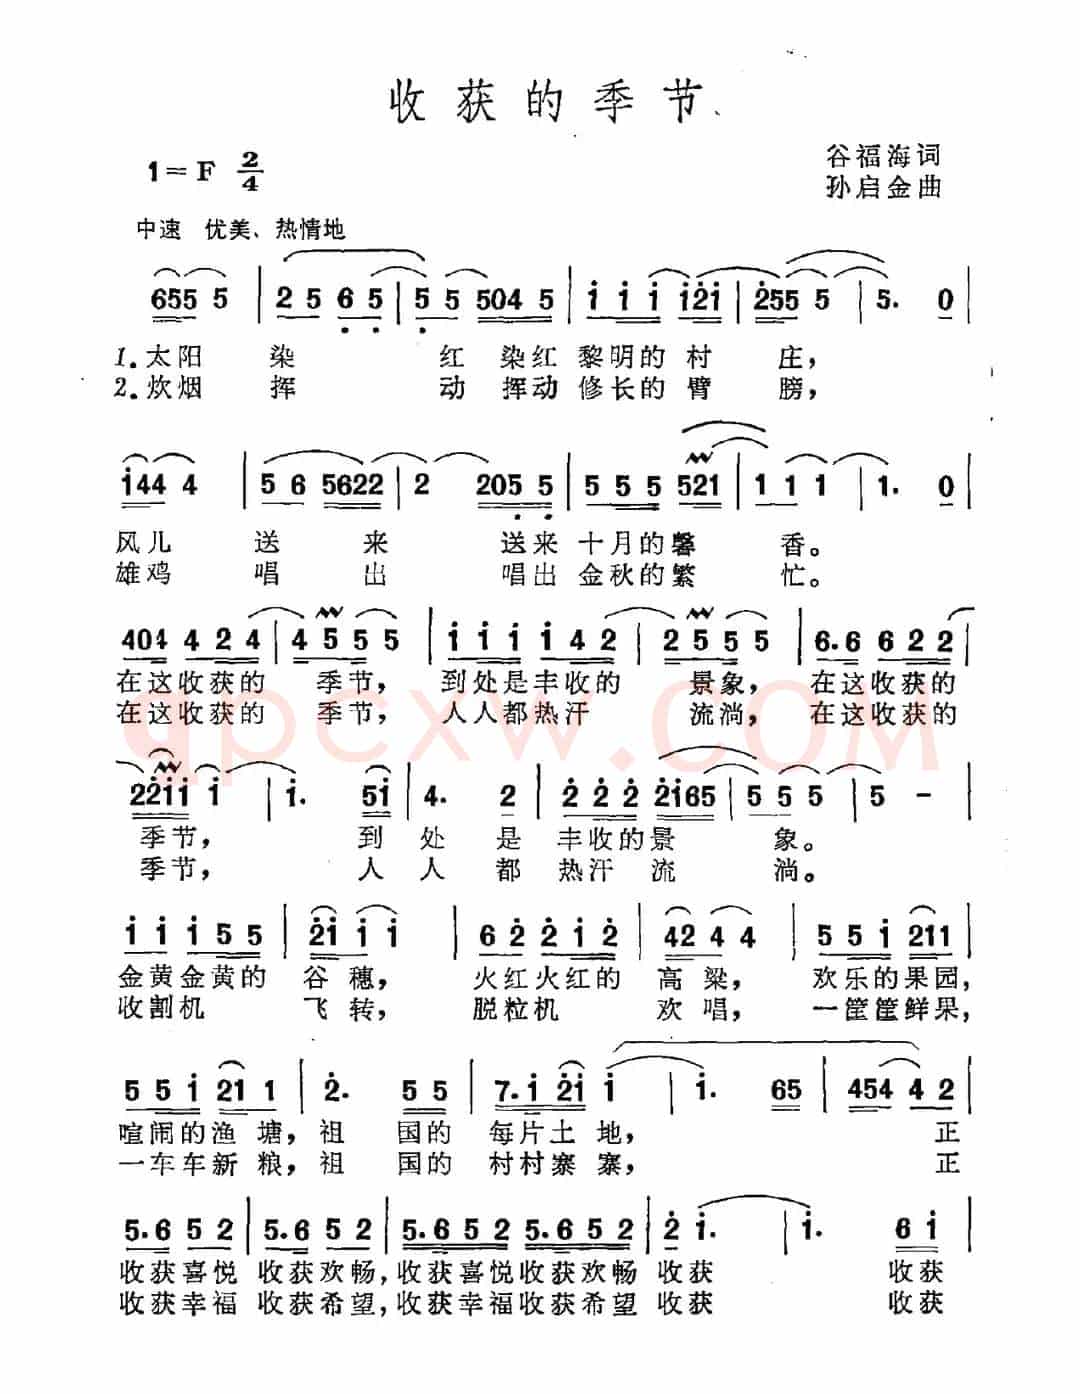 收获的季节
1=F 2/4
谷福海词
孙启金曲
中速 优美、热情地
655 5 | 2 5 6 5 | 5 5 504 5 | i i i i2i | 255 5 | 5. 0 |
1.太阳 染 红 染红 黎明的 村 庄,
2.炊烟 挥 动 挥动 修长的 臂 膀,
i44 4 | 5 6 5622 | 2 205 5 | 5 5 5 521 | 1 1 1 | 1. 0 |
风儿 送 来 送来 十月的馨 香。
雄鸡 唱 出 唱出 金秋的繁 忙。
404 4 2 4 | 4 5 5 5 | i i i i 4 2 | 2 5 5 5 | 6.6 6 2 2 |
在这收获的 季节, 到处是丰收的 景象, 在这收获的
在这收获的 季节, 人人都热汗 流淌, 在这收获的
22ii i | i. 5i | 4. 2 | 2 2 2 2i65 | 5 5 5 | 5 - |
季节, 到 处 是 丰收的景 象。
季节, 人 人 都 热汗 流 淌。
i i i 5 5 | 2i i i | 6 2 2 i 2 | 42 4 4 | 5 5 i 211 |
金黄金黄的 谷 穗, 火红火红的 高 粱, 欢乐的果园,
收割机 飞 转, 脱粒机 欢 唱, 一筐筐鲜果,
5 5 i 21 1 | 2. 5 5 | 7.i 2i i | i. 65 | 454 4 2 |
喧闹的渔 塘, 祖 国的 每片土 地, 正
一车车新 粮, 祖 国的 村村寨 寨, 正
5.6 5 2 | 5.6 5 2 | 5.6 5 2 5.6 5 2 | 2 i. | i. 6 i |
收获喜悦 收获欢畅,收获喜悦收获欢畅 收获 收获
收获幸福 收获希望,收获幸福收获希望 收获 收获
qpcxw.COM